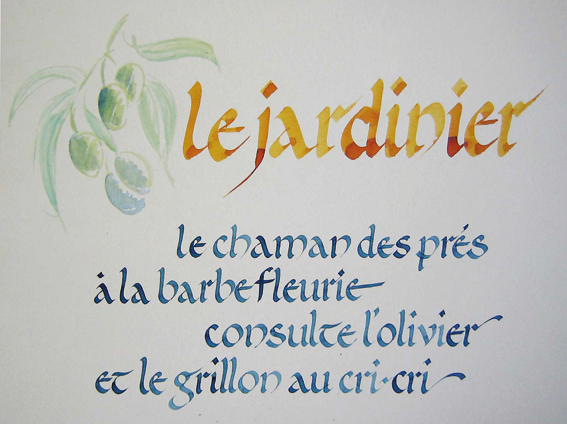 le jardinier
le chaman des prés
à la barbe fleurie
consulte l'olivier
et le grillon au cri-cri